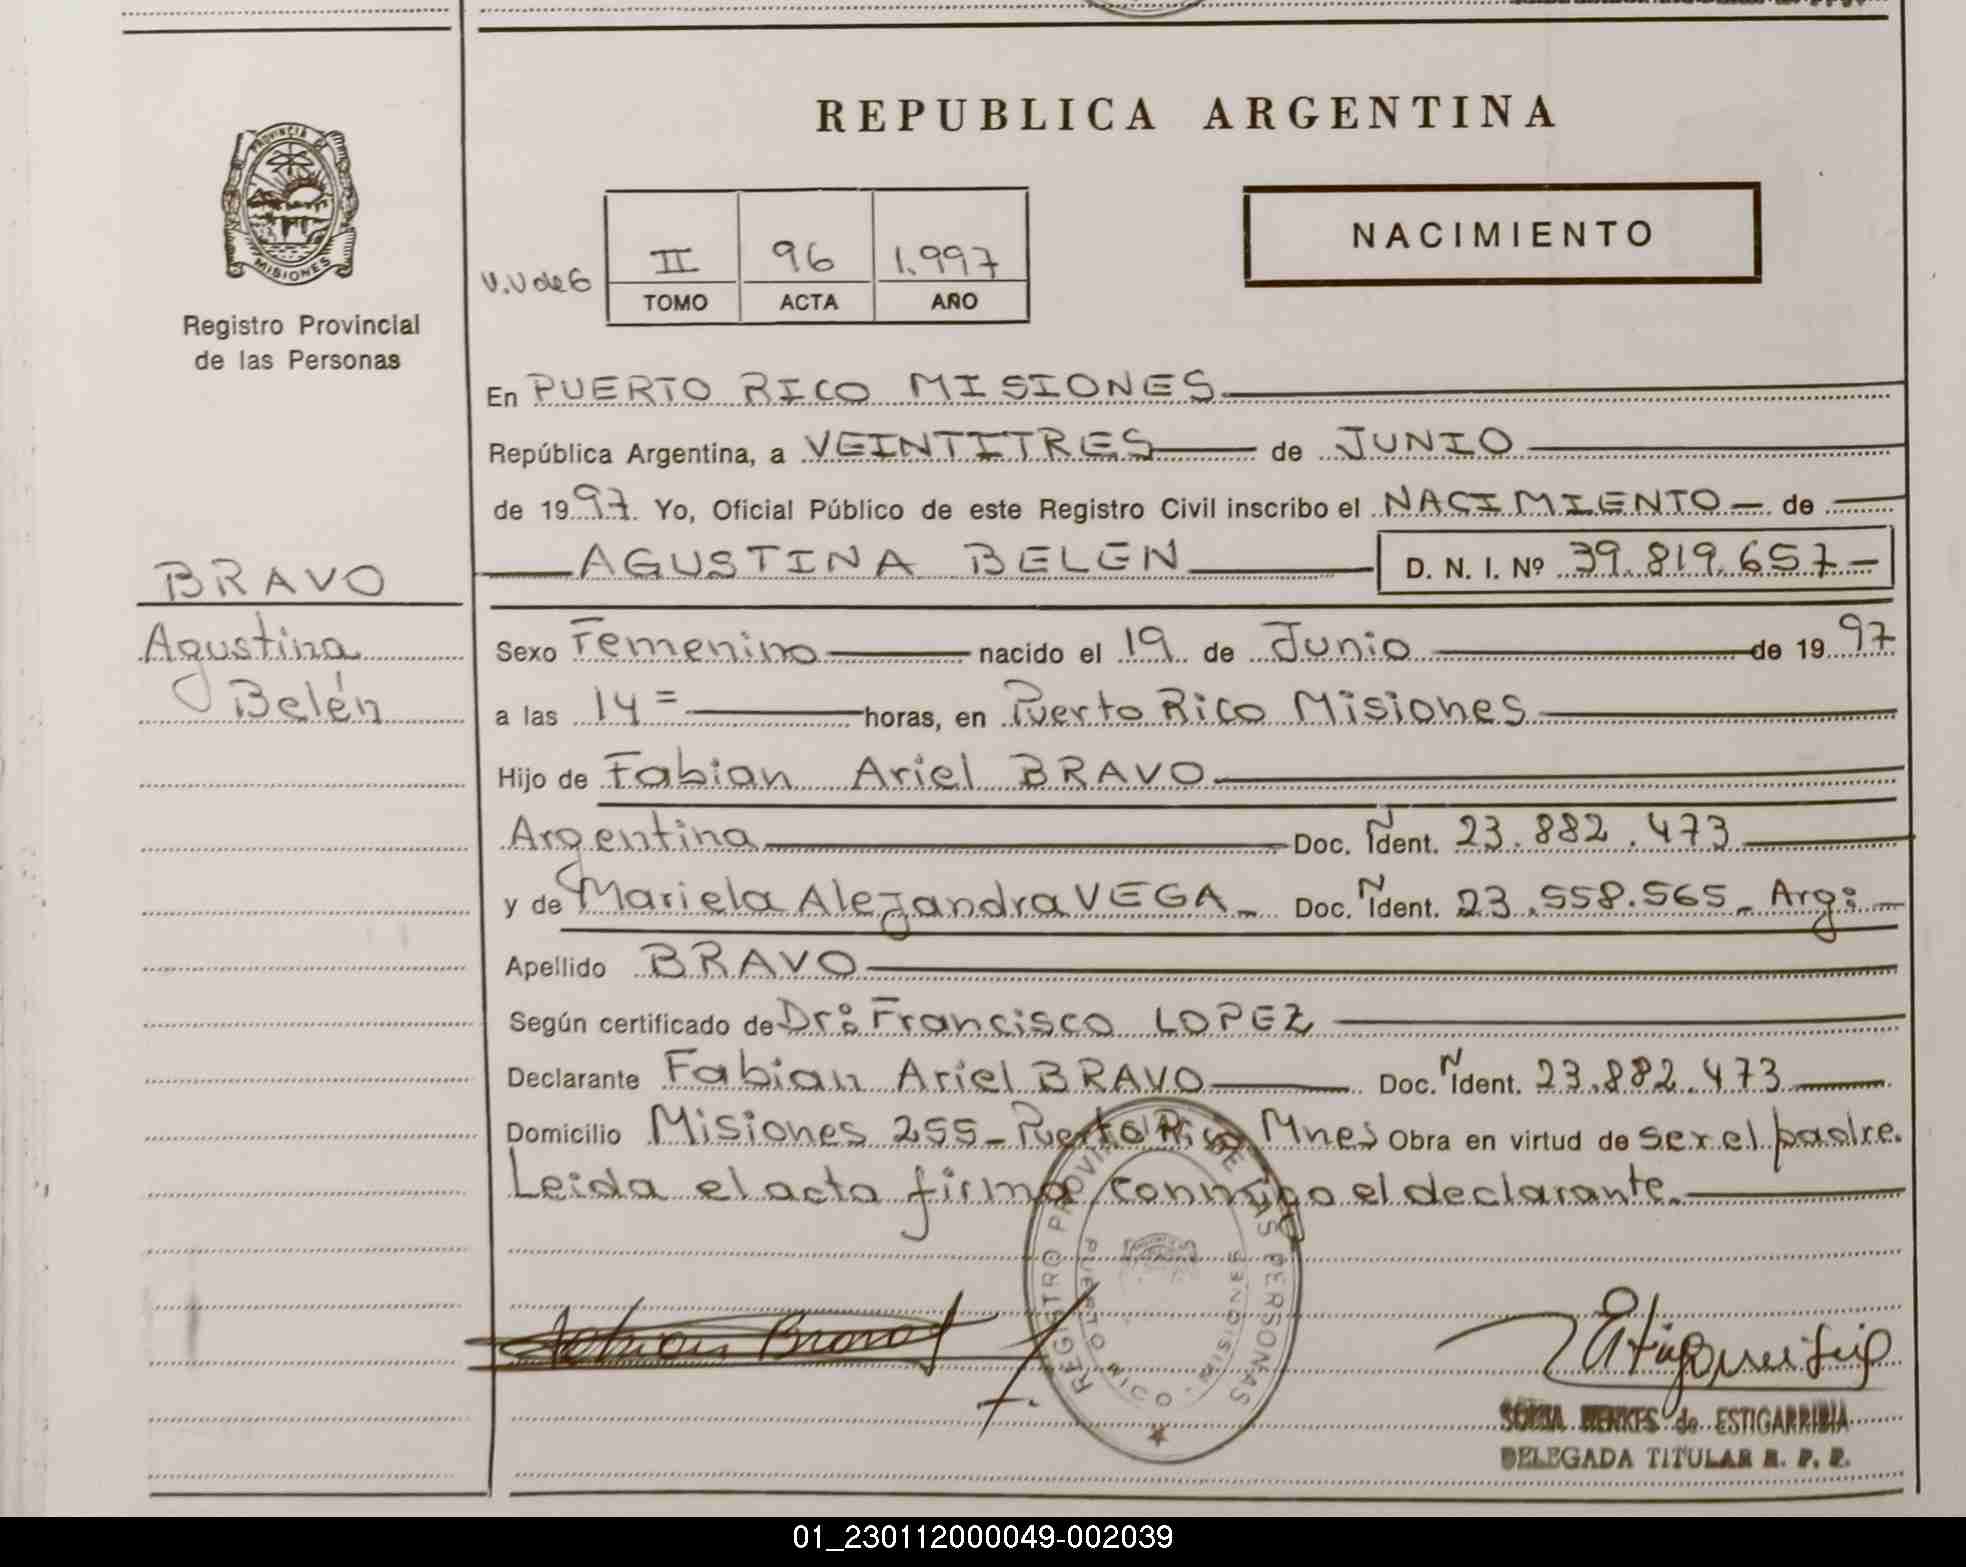 REPUBLICA ARGENTINA
PROVINCIA
MISIONES
Registro Provincial
de las Personas
NACIMIENTO
V.V de 6
II 96 1.997
TOMO ACTA AÑO
En PUERTO RICO MISIONES
República Argentina, a VEINTITRES de JUNIO
de 1997. Yo, Oficial Público de este Registro Civil inscribo el NACIMIENTO de
AGUSTINA BELEN D. N. I. Nº 39.819.657
BRAVO
Agustina
Belén
Sexo Femenino nacido el 19 de Junio de 1997
a las 14= horas, en Puerto Rico Misiones
Hijo de Fabian Ariel BRAVO
Argentina Doc. Ñ Ident. 23.882.473
y de Mariela Alejandra VEGA Doc. Ñ Ident. 23.558.565 Arg:
Apellido BRAVO
Según certificado de Dr: Francisco LOPEZ
Declarante Fabian Ariel BRAVO Doc. Ñ Ident. 23.882.473
Domicilio Misiones 255 - Puerto Rico Mnes Obra en virtud de ser el padre.
Leida el acta firma conmigo el declarante.
REGISTRO PROVINCIAL DE LAS PERSONAS
PUERTO RICO - MISIONES
de ESTIGARRIBIA
DELEGADA TITULAR R. P. P.
01_230112000049-002039